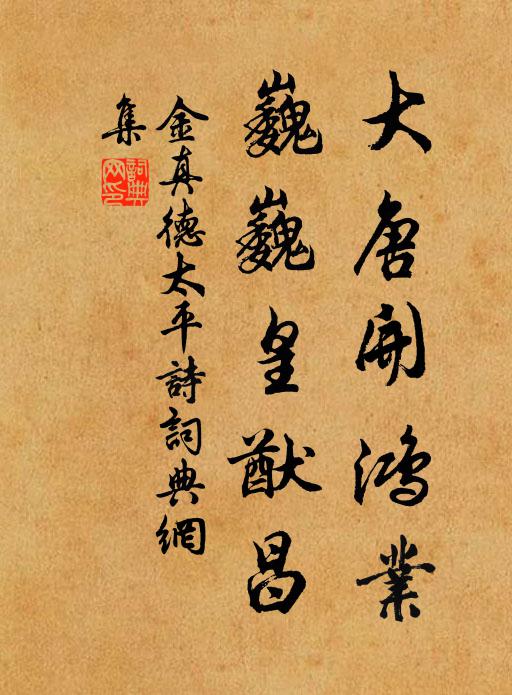 大唐開鴻業
巍巍皇猷昌
金真德太平詩詞典網
集
詞典網印